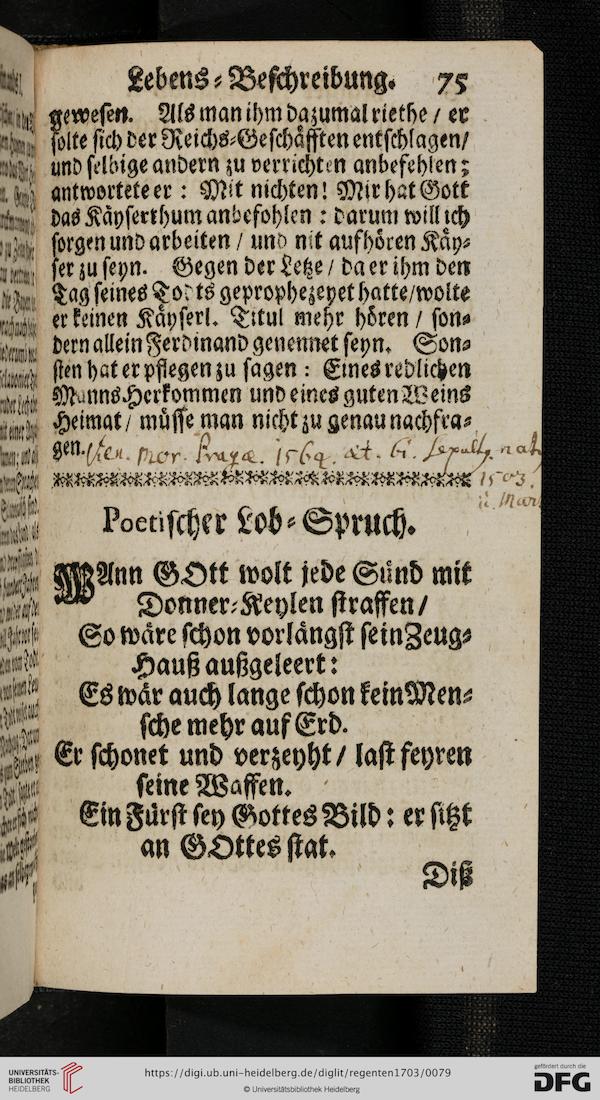 Lebens-Beschreibung. 75
gewesen. Als man ihm dazumal riethe / er
solte sich der Reichs-Geschäfften entschlagen/
und selbige andern zu verrichten anbefehlen;
antwortete er : Mit nichten! Mir hat Gott
das Käyserthum anbefohlen : darum will ich
sorgen und arbeiten / und nit aufhören Käy-
ser zu seyn. Gegen der Letze / da er ihm den
Tag seines Todts geprophezeyet hatte/wolte
er keinen Käyserl. Titul mehr hören / son-
dern allein Ferdinand genennet seyn. Son-
sten hat er pflegen zu sagen : Eines redlichen
Manns Herkommen und eines guten Weins
Heimat / müsse man nicht zu genau nachfra-
gen. mor. Pragæ. 1564. æt. 61. nat
1503.
Poetischer Lob-Spruch.
WAnn GOtt wolt jede Sünd mit
Donner-Keylen straffen /
So wäre schon vorlängst sein Zeug-
Hauß außgeleert :
Es wär auch lange schon kein Men-
sche mehr auf Erd.
Er schonet und verzeyht / last feyren
seine Waffen.
Ein Fürst sey Gottes Bild : er sitzt
an GOttes stat.
Diß
UNIVERSITÄTS-
BIBLIOTHEK
HEIDELBERG
https://digi.ub.uni-heidelberg.de/diglit/regenten1703/0079
© Universitätsbibliothek Heidelberg
gefördert durch die
DFG